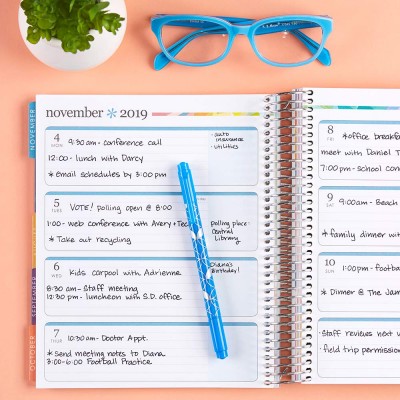 november * 2019
4
MON
9:30 am - conference call
12:00 - lunch with Darcy
* email schedules by 3:00 pm
- auto insurance
- utilities
5
TUES
VOTE! polling open @ 8:00
1:00 - web conference with Avery + Tech
* Take out recycling
polling place:
Central
Library
6
WED
Kids carpool with Adrienne
8:30 am - Staff meeting
12:30 pm - luncheon with S.D. office
Diana's
Birthday!
7
THUR
10:30 am - Doctor Appt.
* Send meeting notes to Diana
3:00-6:00 Football Practice
8
FRI
* office breakfast
meet with Daniel T
7:00 pm - school con
9
SAT
9:00am - Beach
* family dinner with
10
SUN
1:00pm - footba
* Dinner @ The Jam
Staff reviews next
field trip permission
NOVEMBER
SEPTEMBER
OCTOBER